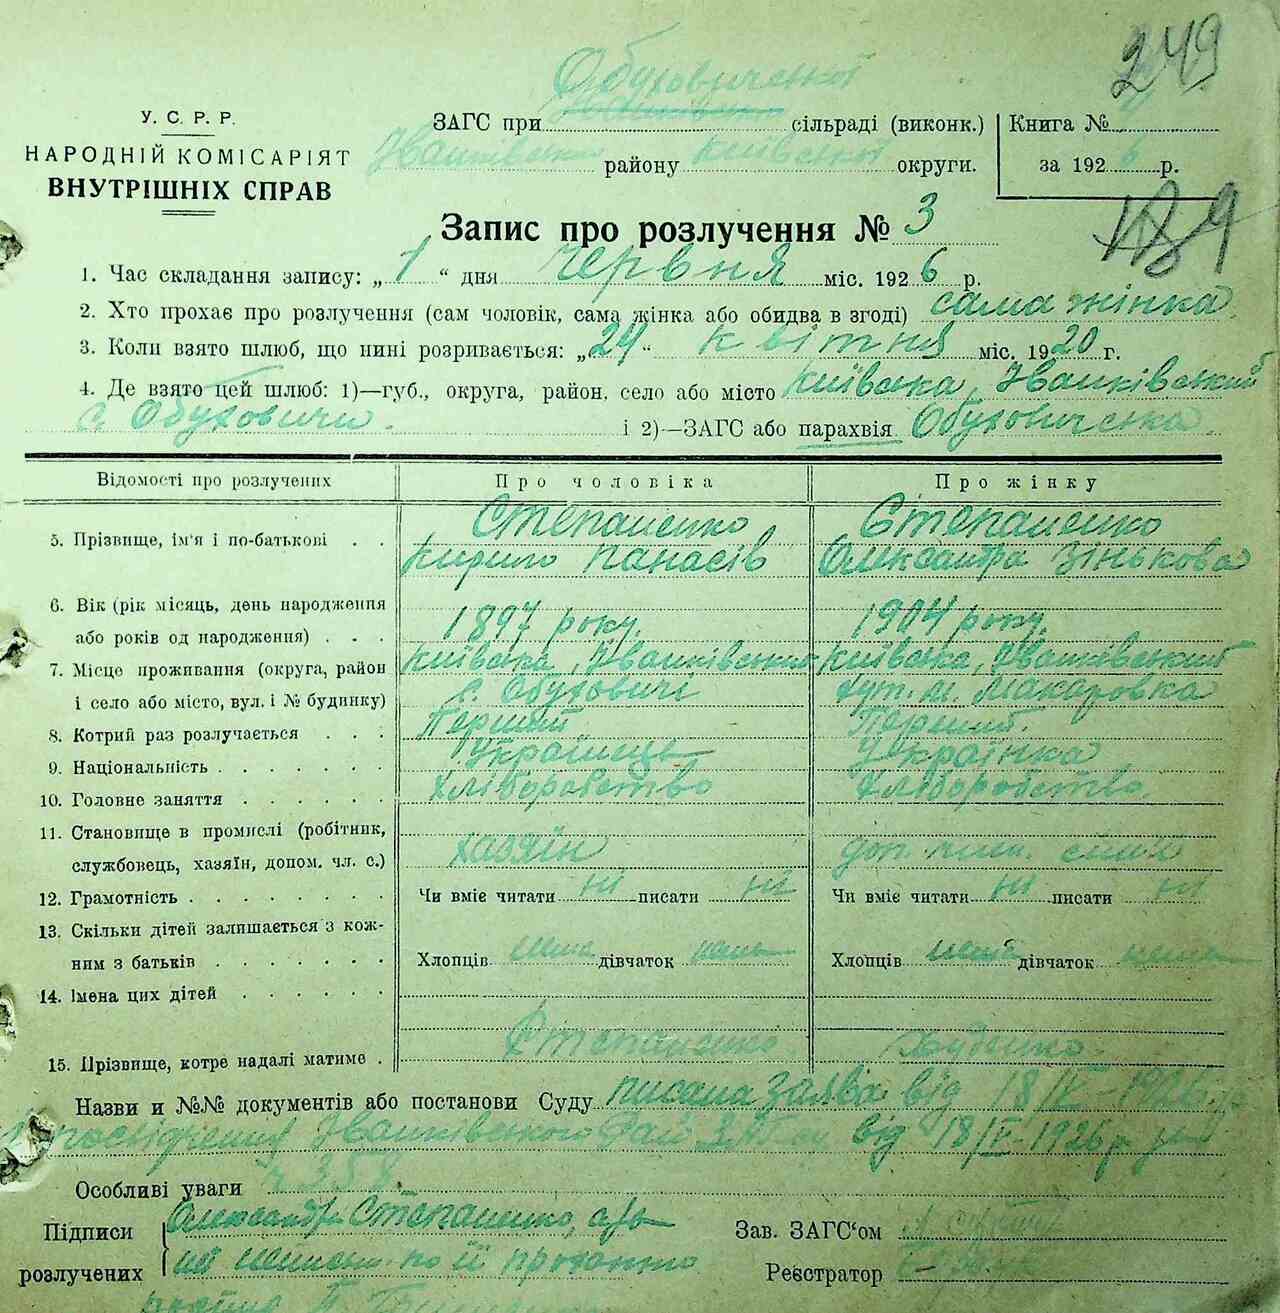 249
Обуховиченській
У. С. Р. Р.
НАРОДНІЙ КОМІСАРІЯТ
ВНУТРІШНІХ СПРАВ
ЗАГС при сільраді (виконк.)
Іванківського району Київської округи.
Книга №
за 1926 р.
Запис про розлучення № 3
1. Час складання запису: „1“ дня червня міс. 1926 р.
2. Хто прохає про розлучення (сам чоловік, сама жінка або обидва в згоді) сама жінка
3. Коли взято шлюб, що нині розривається: „24“ квітня міс. 1920 г.
4. Де взято цей шлюб: 1)—губ., округа, район, село або місто Київська, Іванківський
с. Обуховичи. і 2)—ЗАГС або парахвія Обуховиченська.
Відомості про розлучених Про чоловіка Про жінку
5. Прізвище, ім'я і по-батькові . . Степаненко Кирило Панасів Степаненко Олександра Зінькова
6. Вік (рік місяць, день народження
або років од народження) . . . 1897 року. 1904 року.
7. Місце проживання (округа, район Київська, Іванківський Київська, Іванківський
і село або місто, вул. і № будинку) с. Обуховичі хут. Макаровка
8. Котрий раз розлучається . . . Перший Перший.
9. Національність . . . . . . . Українець Українка
10. Головне заняття . . . . . . Хліборобство Хліборобство.
11. Становище в промислі (робітник,
службовець, хазяїн, допом. чл. с.) хазяїн доп. член. сім'ї
12. Грамотність . . . . . . . . Чи вміє читати ні писати ні Чи вміє читати ні писати ні
13. Скільки дітей залишається з кож-
ним з батьків . . . . . . . Хлопців нема дівчаток нема Хлопців нема дівчаток нема
14. Імена цих дітей . . . . . .
15. Прізвище, котре надалі матиме . Степаненко Худенко.
Назви и №№ документів або постанови Суду писана заява від 18/V 1926 р.
посвідчення Іванківського Рай від 18/V-1926 р.
Особливі уваги 358.
Підписи Олександра Степаненко, а за Зав. ЗАГС'ом
розлучених по її проханню Реєстратор